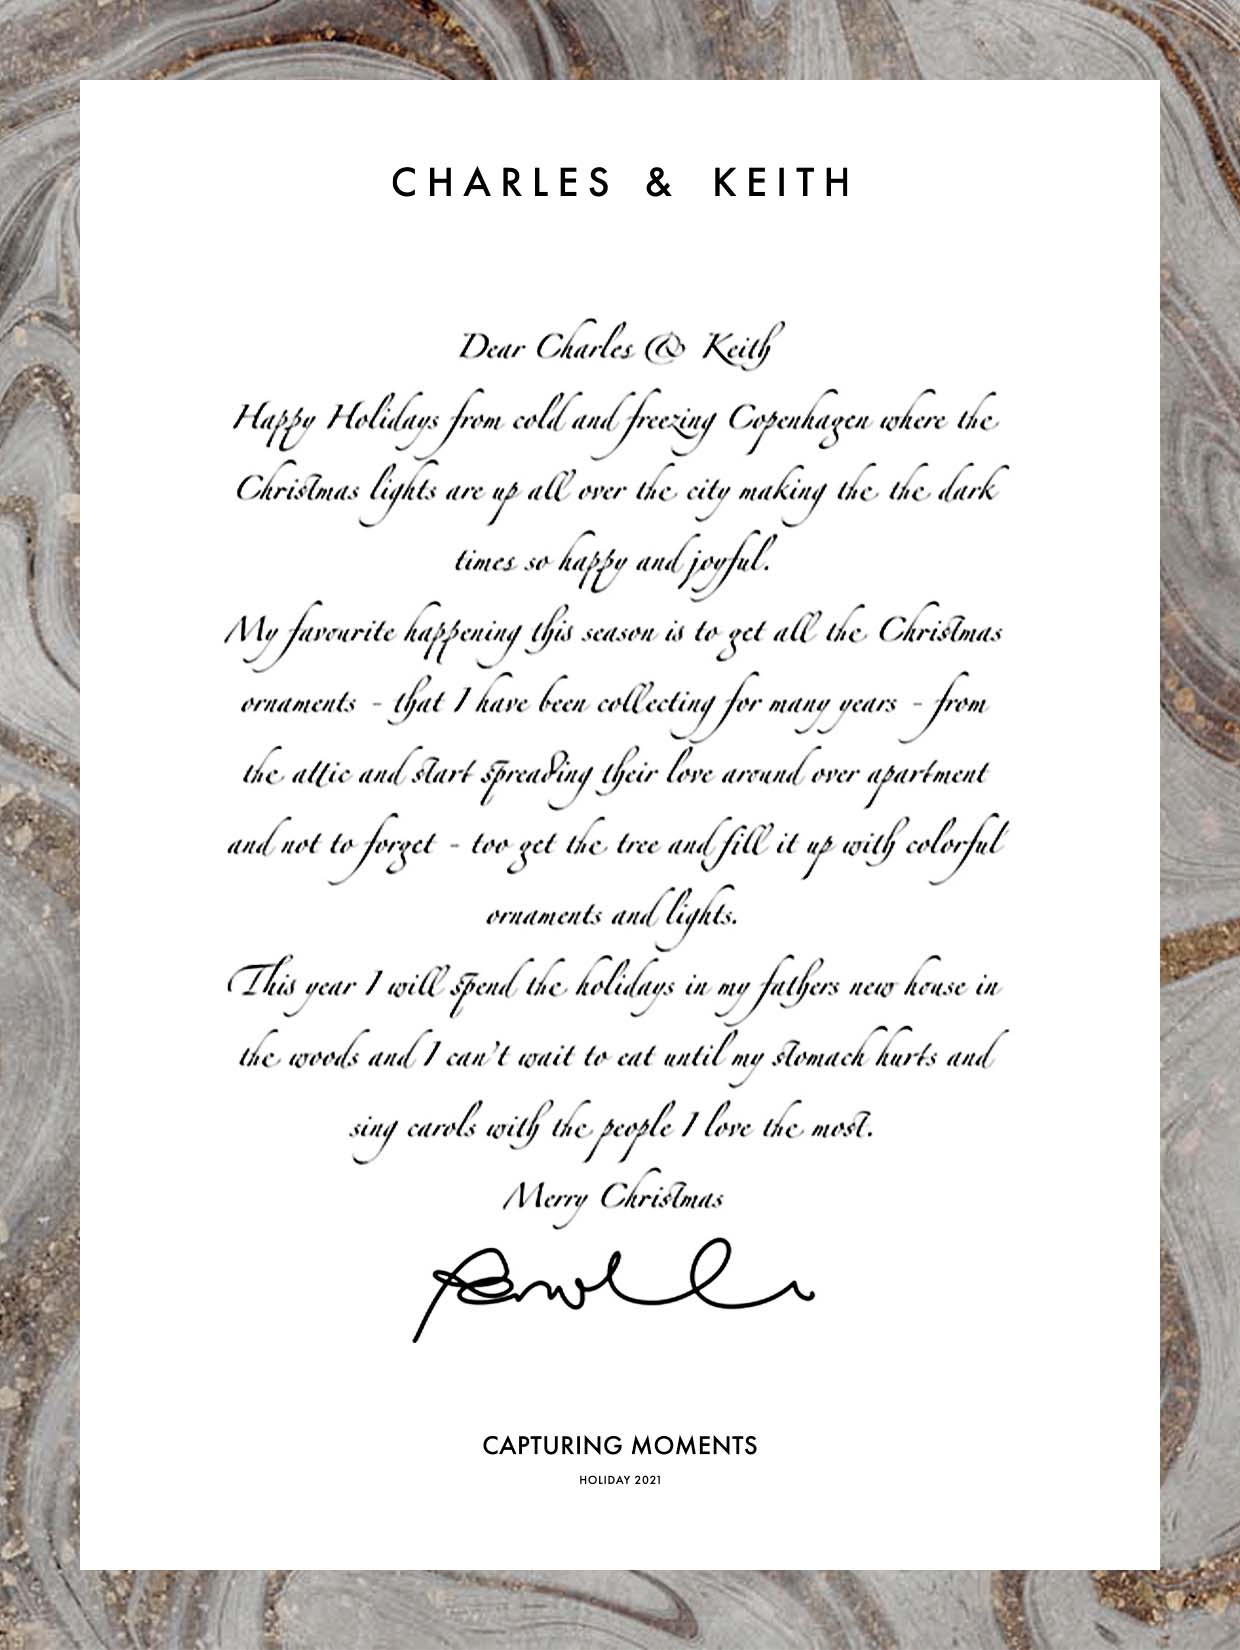 CHARLES & KEITH
Dear Charles & Keith
Happy Holidays from cold and freezing Copenhagen where the
Christmas lights are up all over the city making the the dark
times so happy and joyful.
My favourite happening this season is to get all the Christmas
ornaments - that I have been collecting for many years - from
the attic and start spreading their love around over apartment
and not to forget - too get the tree and fill it up with colorful
ornaments and lights.
This year I will spend the holidays in my fathers new house in
the woods and I can't wait to eat until my stomach hurts and
sing carols with the people I love the most.
Merry Christmas
CAPTURING MOMENTS
HOLIDAY 2021